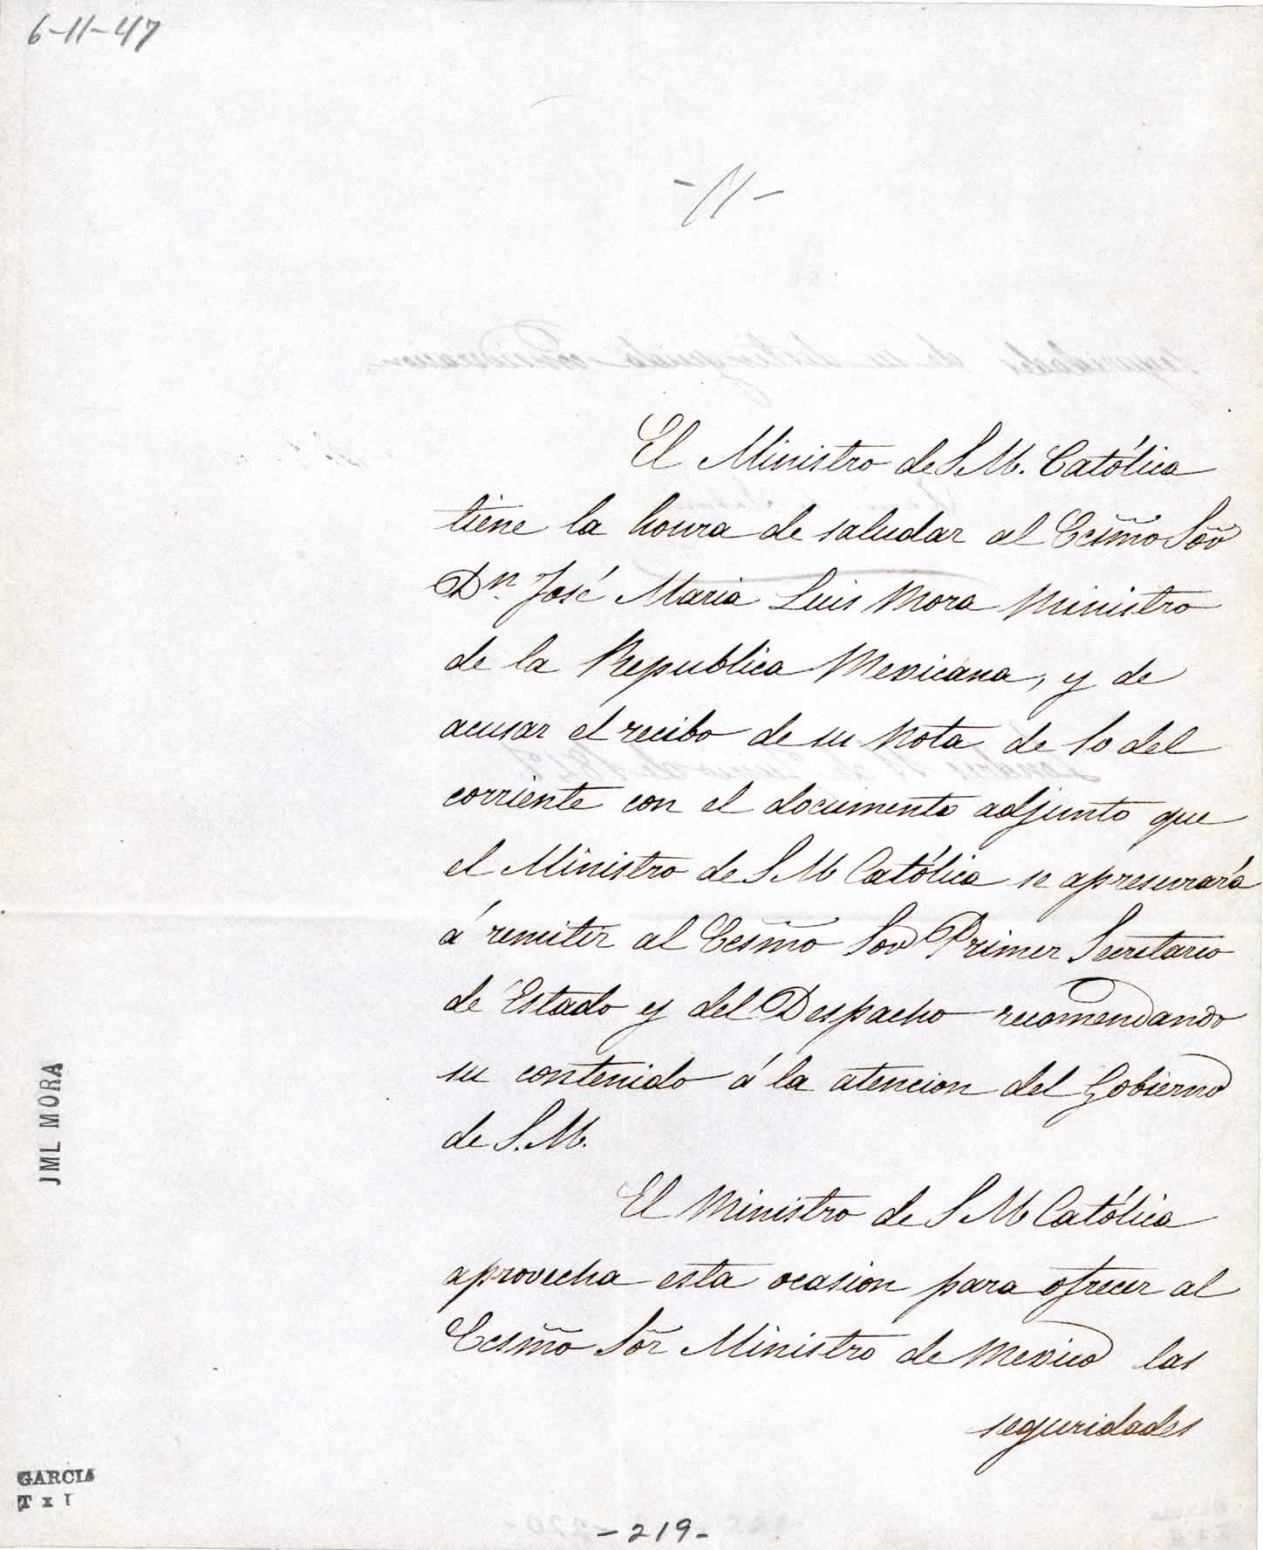 6-11-47
-11-
El Ministro de S.M. Católica
tiene la honra de saludar al Ecsm̃o Sõr
Dn. José Maria Luis Mora Ministro
de la Republica Mexicana, y de
acusar el recibo de su Nota de 10 del
corriente con el documento adjunto que
el Ministro de S M Católica se apresurará
á remitir al Ecsm̃o Sor Primer Secretario
de Estado y del Despacho recomendando
su contenido á la atencion del Gobierno
de S.M.
El Ministro de S M Católica
aprovecha esta ocasion para ofrecer al
Ecsm̃o Sõr Ministro de Mexico las
seguridades
JML MORA
GARCIA
T x I
-219-